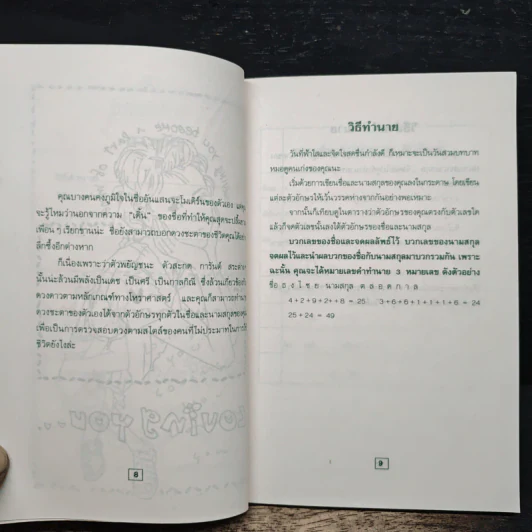 คุณบางคนคงภูมิใจในชื่ออันแสนจะโมเดิร์นของตัวเอง แต่คุณ
จะรู้ไหมว่านอกจากความ "เด่น" ของชื่อที่ทำให้คุณสุด
เพื่อน ๆ เรียกขานน่ะ ชื่อยังสามารถบอกดวงชะตาของชีวิตคุณได้
ลึกซึ้งอีกต่างหาก
ก็เนื่องเพราะว่าตัวพยัญชนะ ตัวสะกด การันต์ สระ
นั้นน่ะล้วนมีพลังเป็นเดช เป็นศรี เป็นกาลกิณี ซึ่งล้วนเกี่ยวข้อง
ดวงดาวตามหลักเกณฑ์ทางโหราศาสตร์ และคุณก็สามารถ
ดวงชะตาของตัวเองได้จากตัวอักษรทุกตัวในชื่อและนามสกุลของคุณ
เพื่อเป็นการตรวจสอบดวงตามสไตล์ของคนที่ไม่ประมาทในการใช้
ชีวิตยังไงล่ะ
8
วิธีทำนาย
วันที่ฟ้าใสและจิตใจสดชื่นกำลังดี ก็เหมาะจะเป็นวันสวมบทบาท
หมอดูคนเก่งของคุณนะ
เริ่มด้วยการเขียนชื่อและนามสกุลของคุณลงในกระดาษ โดยเขียน
แต่ละตัวอักษรให้เว้นวรรคห่างจากกันอย่างพอเหมาะ
จากนั้นก็เทียบดูในตารางว่าตัวอักษรของคุณตรงกับตัวเลขใด
แล้วก็จดตัวเลขนั้นลงใต้ตัวอักษรของชื่อและนามสกุล
บวกเลขของชื่อและจดผลลัพธ์ไว้ บวกเลขของนามสกุล
จดผลไว้และนำผลบวกของชื่อกับนามสกุลมาบวกรวมกัน เพราะ
ฉะนั้น คุณจะได้หมายเลขคำทำนาย 3 หมายเลข ดังตัวอย่าง
ชื่อ ธ ง ไ ช ย นามสกุล ต ล อ ด ก า ล
4+2+9+2++8 = 25 3+6+6+1+1+1+6 = 24
25+24 = 49
9